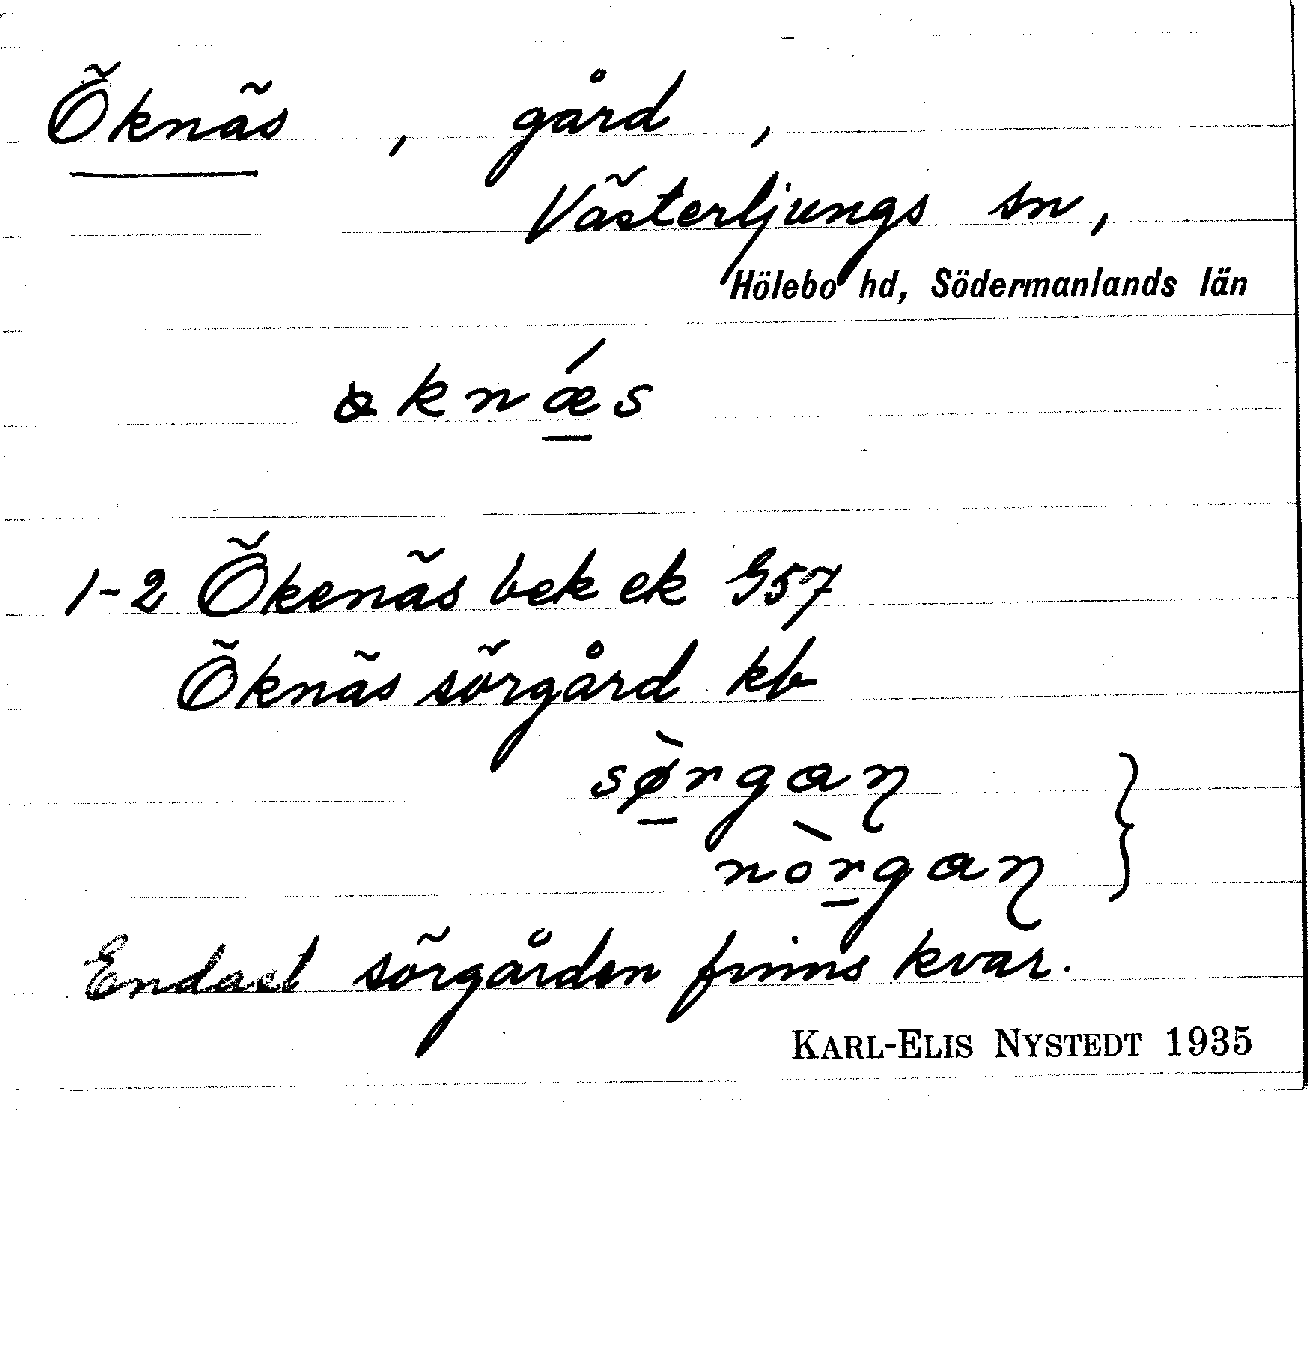 Öknäs, gård,
Västerljungs sn,
Hölebo hd, Södermanlands län
knǽs
1-2 Ökenäs bek ek G57
Öknäs sörgård kb
sø̀rgaɳ
nòrgaɳ }
Endast sörgården finns kvar.
KARL-ELIS NYSTEDT 1935